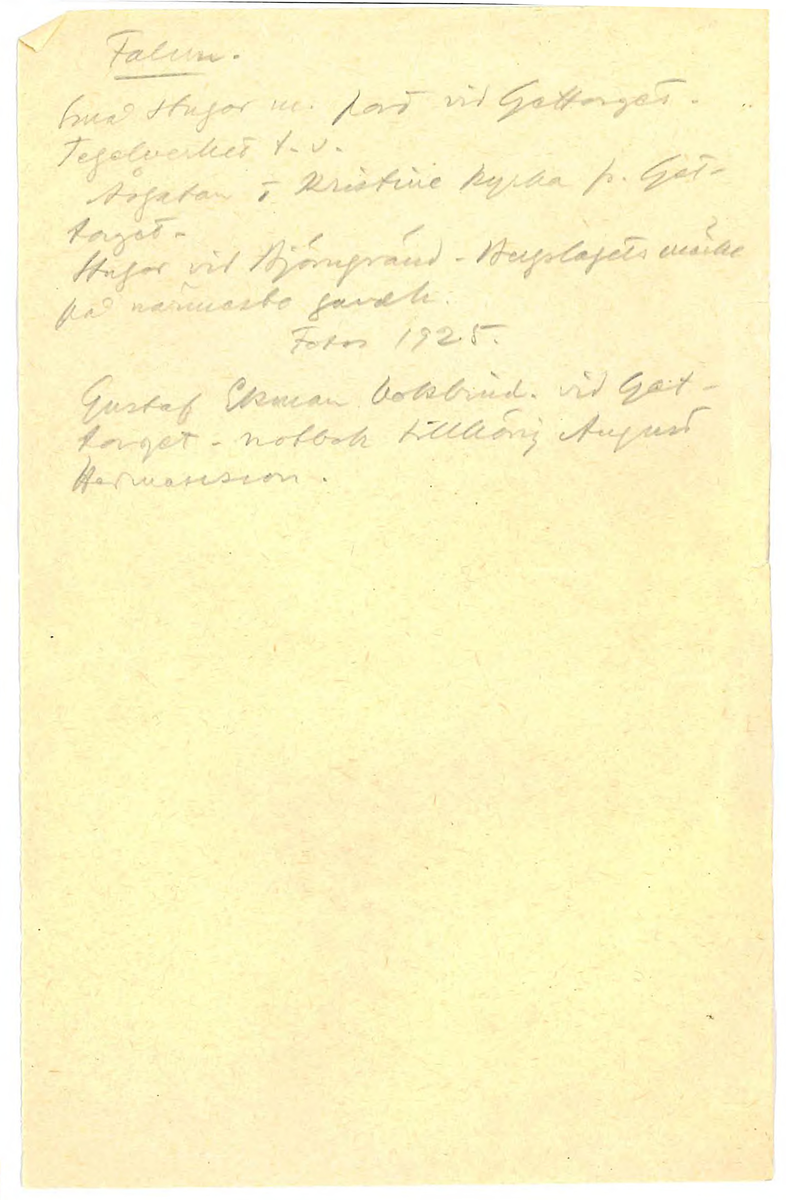 Falun.
Små stugor m. port vid Gattorget.
Tegelverket t.v.
Åsgatan Kristine kyrka fr. Gat-
torget.
Stugor vid Björngränd - Bergslagets märke
på närmaste gaveln.
Fotos 1925.
Gustaf Ekman bokbind. vid Gat-
torget - notbok tillhörig August
Hermansson.